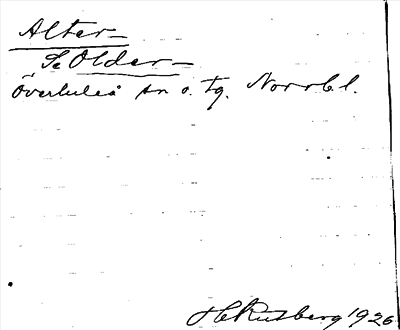 Alter-
Se Older-
Överluleå sn o. tg. Norrb. l.
HCRutberg 1926